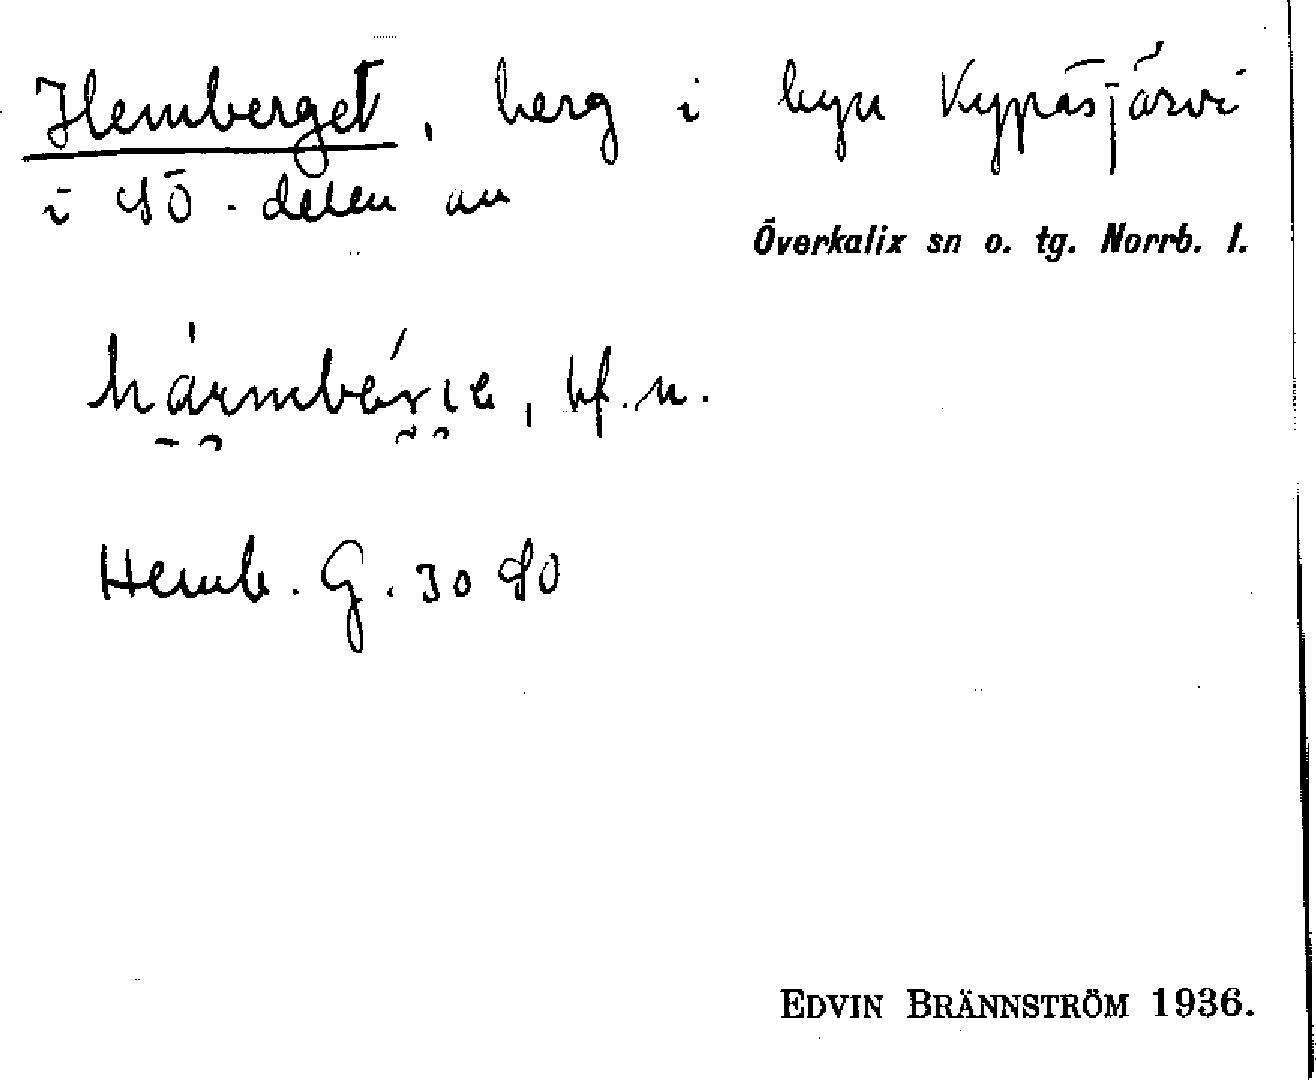 Hemberget, berg i byn Kypäsjärvi
i SÖ-delen av
Överkalix sn o. tg. Norrb. l.
bf. n.
Hemb. G. 30 SO
EDVIN BRÄNNSTRÖM 1936.